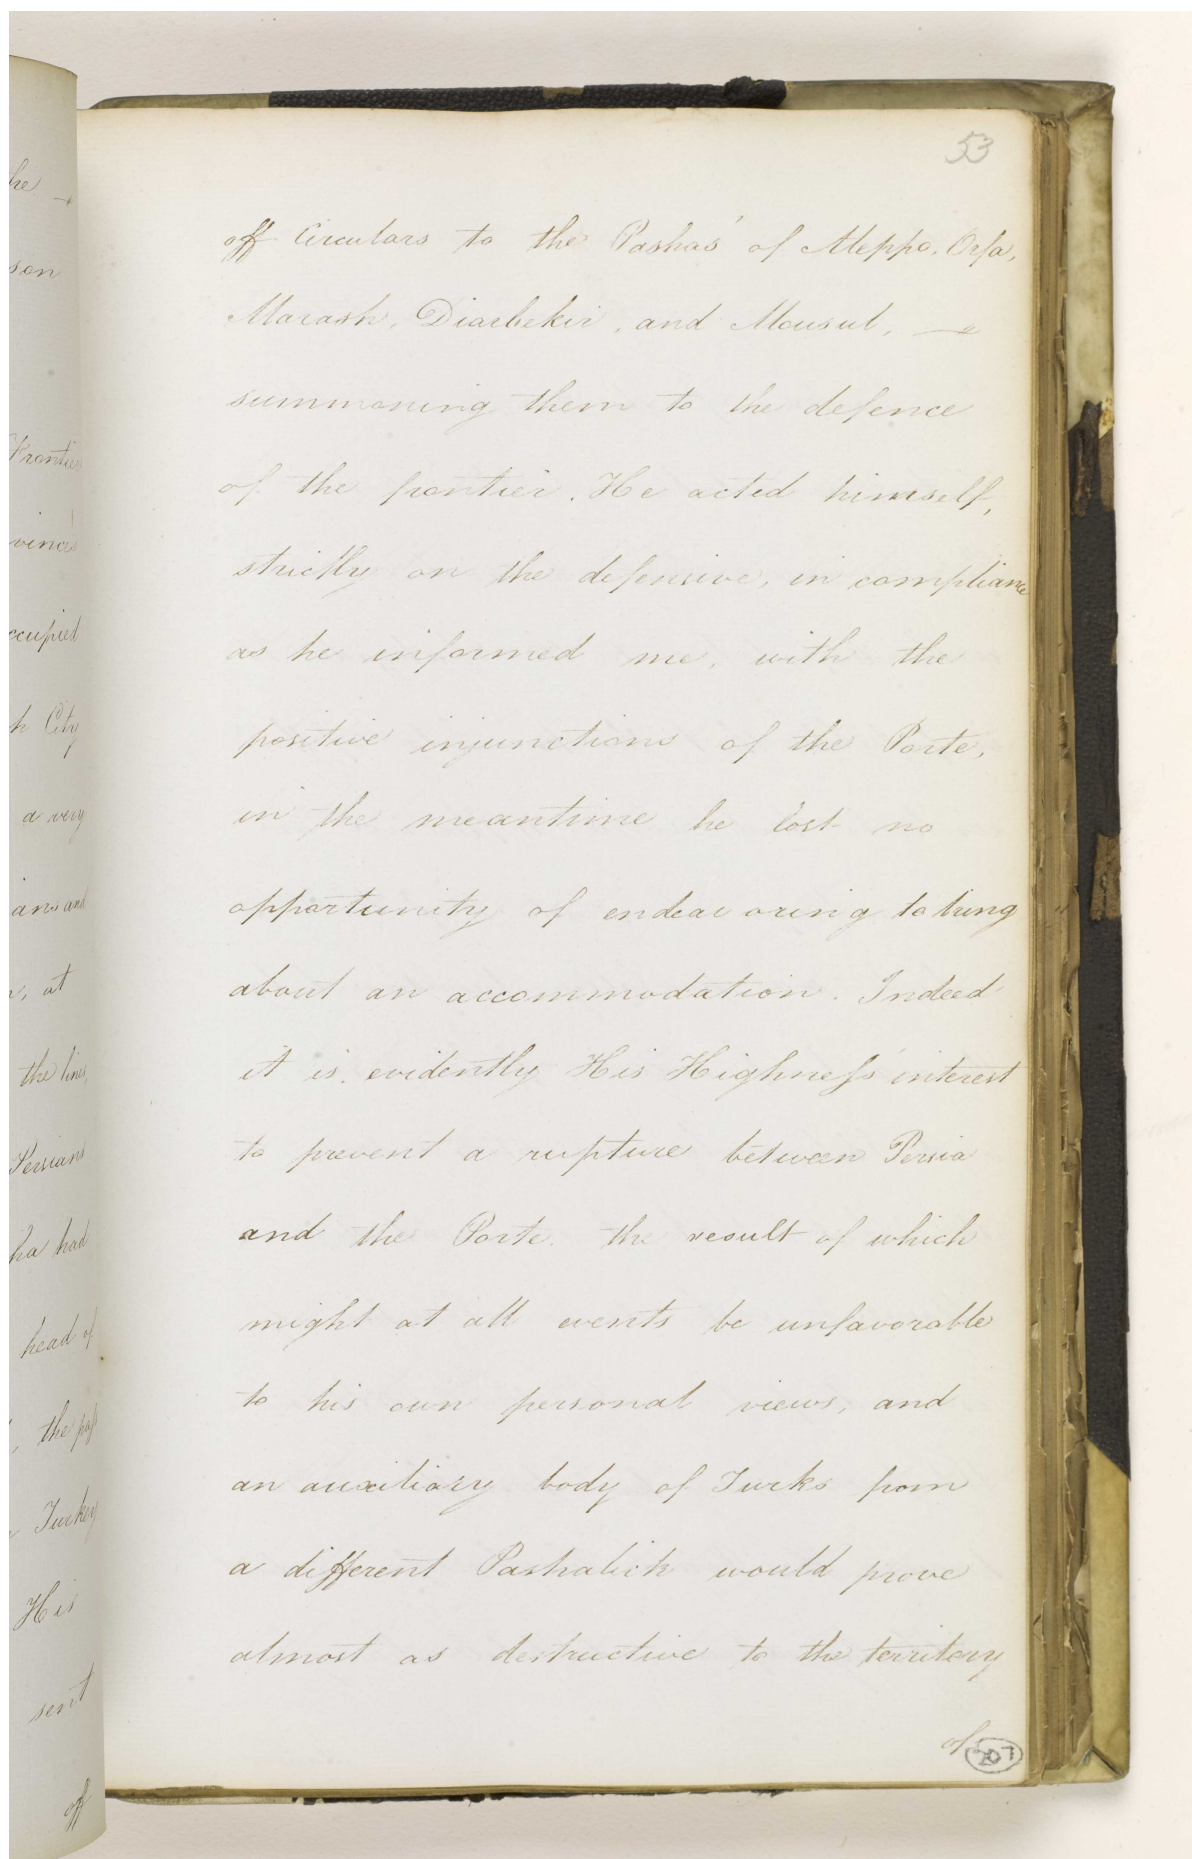 he
son
Frontier
vinces
ccupied
h City
a very
ans and
, at
the lines,
Persians
ha had
head of
, the pass
Turkey
His
sent
off
53
off Circulars to the Pashas' of Aleppo, Orfa,
Marash, Diarbekir, and Mousul,
summoning them to the defence
of the frontier. He acted himself,
strictly on the defensive, in compliance
as he informed me, with the
positive injunctions of the Porte,
in the meantime he lost no
opportunity of endeavoring to bring
about an accommodation. Indeed
it is evidently His Highness' interest
to prevent a rupture between Persia
and the Porte. the result of which
might at all events be unfavorable
to his own personal views, and
an auxiliary body of Turks from
a different Pashalick would prove
almost as destructive to the territory
of
207